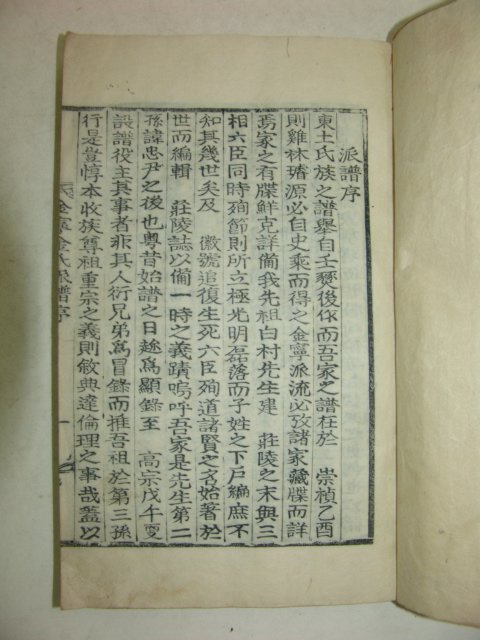 派譜序
東土氏族之譜擧自壬燹後作而吾家之譜在於 崇禎乙酉
則雞林璿源必自史乘而得之金寧派流必攷諸家藏牒而詳
焉家之有牒鮮克詳備我先祖白村先生建 莊陵之末與三
相六臣同時殉節則所立極光明磊落而子姓之下戶編庶不
知其幾世矣及 徽號追復生死六臣殉道諸賢之名始著於
世而編輯 莊陵誌以備一時之義蹟嗚呼吾家是先生第二
孫諱忠尹之後也粤昔始譜之日趂爲顯錄至 高宗戊午更
設譜役主其事者非其人衍兄弟爲冒錄而推吾祖於第三孫
行是豈惇本收族尊祖重宗之義則敘典達倫理之事哉蓋以
金寧金氏派譜序 一